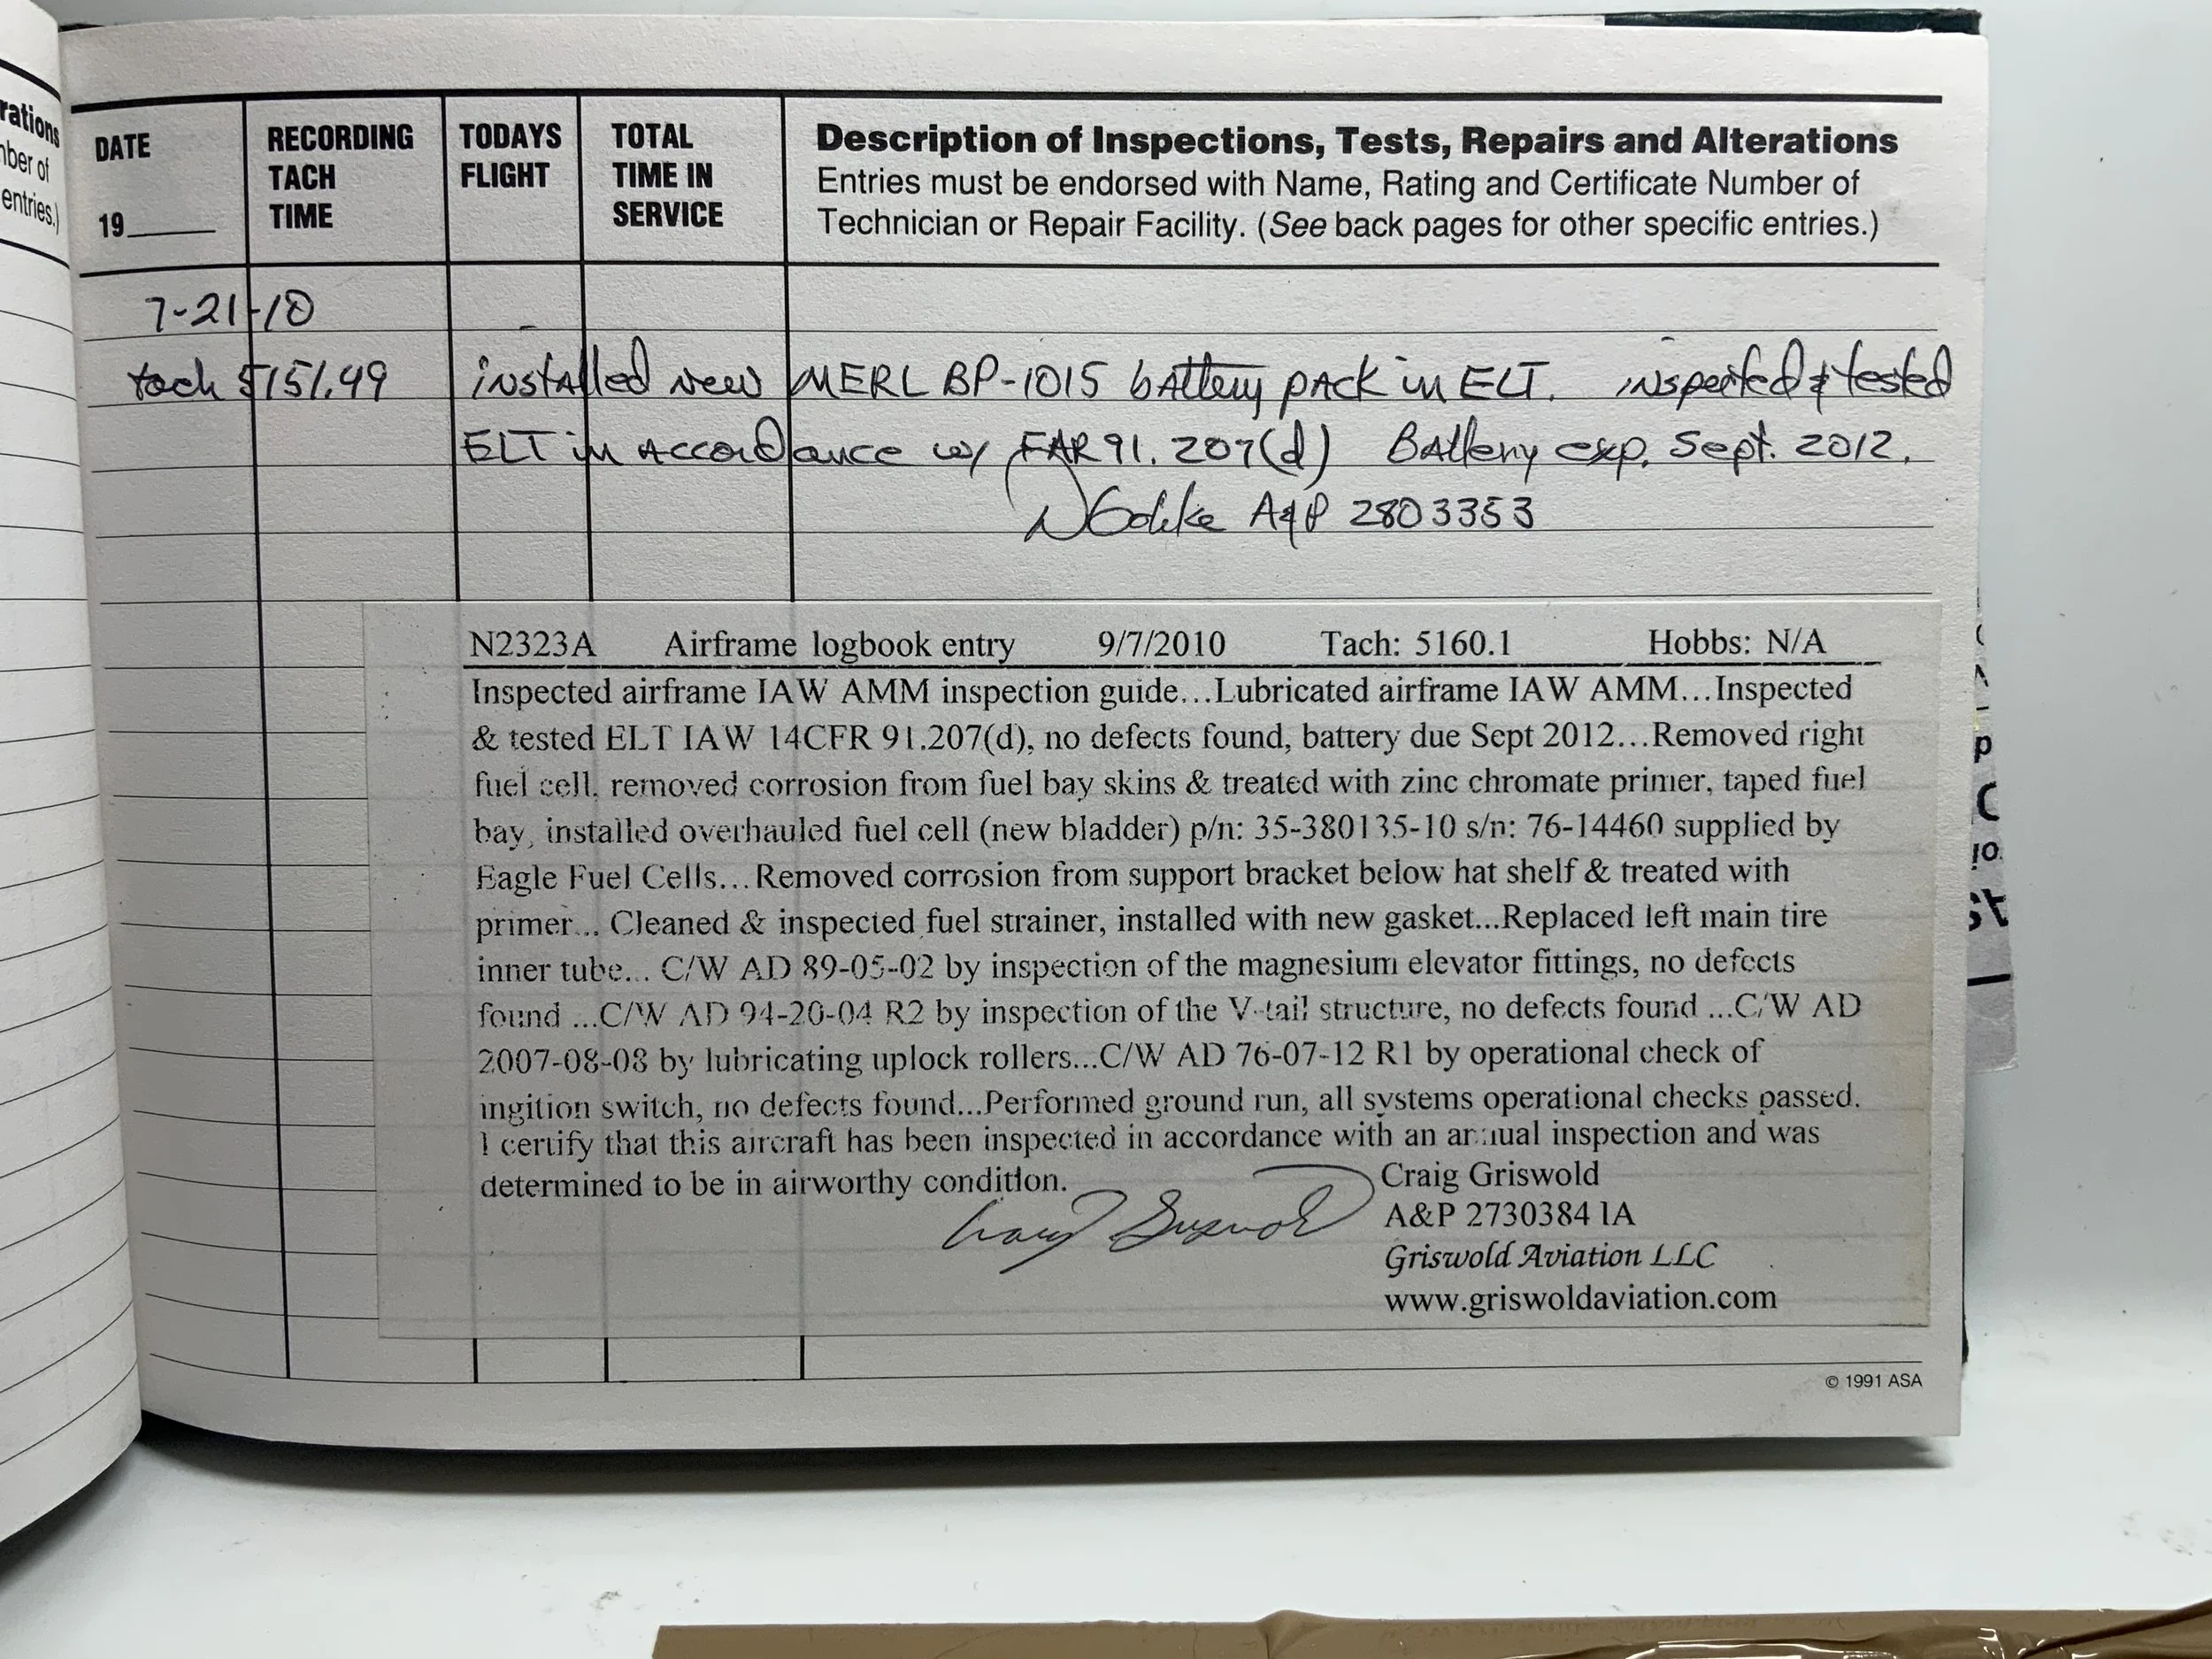 rations
nber of
entries.)
DATE
19
RECORDING
TACH
TIME
TODAYS
FLIGHT
TOTAL
TIME IN
SERVICE
Description of Inspections, Tests, Repairs and Alterations
Entries must be endorsed with Name, Rating and Certificate Number of
Technician or Repair Facility. (See back pages for other specific entries.)
7-21-10
tach 5151.49 installed new MERL BP-1015 battery pack in ELT. inspected & tested
ELT in accordance w/ FAR 91.207(d) Battery exp. Sept. 2012.
A&P 2803353
N2323A Airframe logbook entry 9/7/2010 Tach: 5160.1 Hobbs: N/A
Inspected airframe IAW AMM inspection guide...Lubricated airframe IAW AMM...Inspected
& tested ELT IAW 14CFR 91.207(d), no defects found, battery due Sept 2012...Removed right
fuel cell, removed corrosion from fuel bay skins & treated with zinc chromate primer, taped fuel
bay, installed overhauled fuel cell (new bladder) p/n: 35-380135-10 s/n: 76-14460 supplied by
Eagle Fuel Cells...Removed corrosion from support bracket below hat shelf & treated with
primer... Cleaned & inspected fuel strainer, installed with new gasket...Replaced left main tire
inner tube... C/W AD 89-05-02 by inspection of the magnesium elevator fittings, no defects
found ...C/W AD 94-20-04 R2 by inspection of the V-tail structure, no defects found ...C/W AD
2007-08-08 by lubricating uplock rollers...C/W AD 76-07-12 R1 by operational check of
ingition switch, no defects found...Performed ground run, all systems operational checks passed.
I certify that this aircraft has been inspected in accordance with an annual inspection and was
determined to be in airworthy condition.
Craig Griswold
Craig Griswold
A&P 2730384 IA
Griswold Aviation LLC
www.griswoldaviation.com
© 1991 ASA